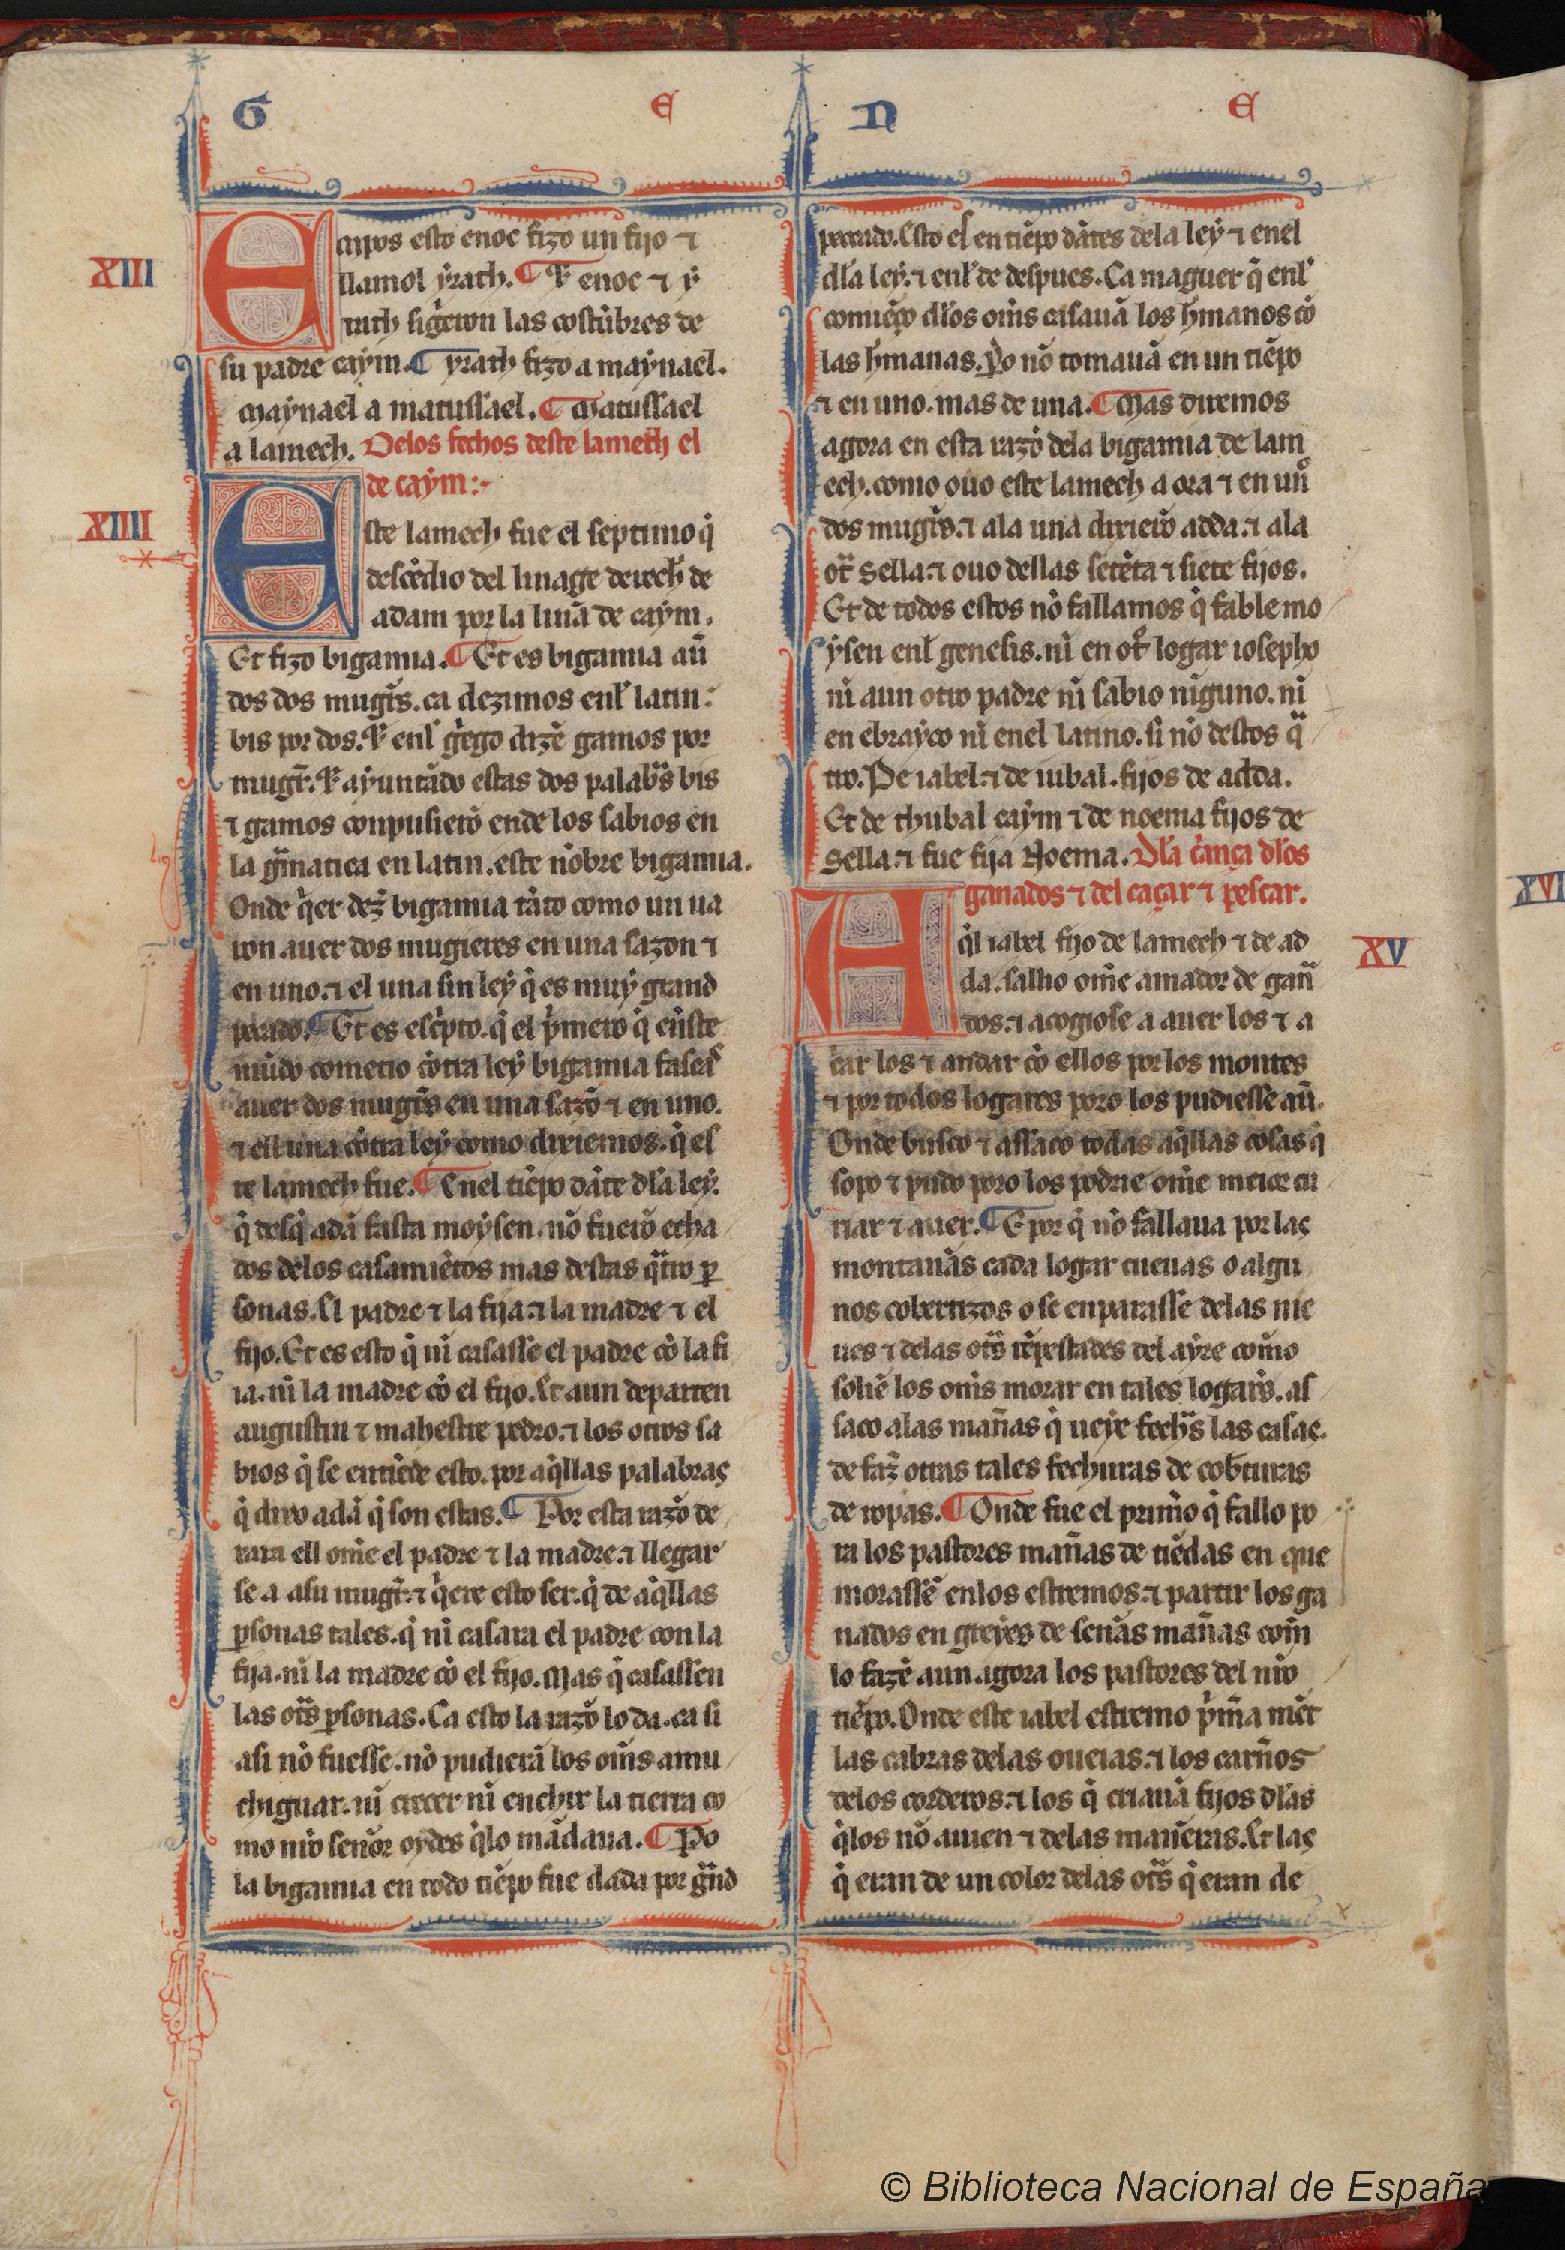 G E N E
XIII
E mpos esto enoc fizo un fijo ⁊
llamol yrath. ¶ Et enoc ⁊ y
rath sigeron las costũbres de
su padre caym. ¶ yrath fizo a maynael.
Maynael a matussael. ¶ Matussael
a lamech. Delos fechos deste lamech el
de caym:-
XIIII
Este lamech fue el septimo q̃
descẽdio del linage derech̃ de
adam por la liña de caym.
Et fizo bigamia. ¶ Et es bigamia aũ
dos dos mugr̃s. ca dezimos enl latin:
bis por dos. Et enl grego dizẽ gamos por
mugr̃. Et ayuntãdo estas dos palabr̃s bis
⁊ gamos conpusierõ ende los sabios en
la gr̃matica en latin. este nõbre bigamia.
Onde q̃er dez̃ bigamia tãto como un ua
ron auer dos mugieres en una sazon ⁊
en uno. ⁊ el una sin ley q̃ es muy grand
pecado. ¶ Et es escpto. q̃ el p̃mero q̃ eñste
mũdo cometio cõtra ley bigamia fascas
auer dos mugr̃s en una sazõ ⁊ en uno.
⁊ ell una cõtra ley como dixiemos. q̃ es
te lamech fue. ¶ Enel tiẽpo dãte dla ley.
q̃ desq̃ adã fasta moysen. nõ fuerõ echa
dos delos casamiẽtos mas destas q̃tro p̱
sonas. El padre ⁊ la fija. ⁊ la madre ⁊ el
fijo. Et es esto q̃ nĩ casasse el padre cõ la fi
ia. nĩ la madre cõ el fijo. Et aun departen
augustin ⁊ mahestre pedro. ⁊ los otros sa
bios q̃ se entiẽde esto. por aq̃llas palabras
q̃ dixo adã q̃ son estas. ¶ Por esta razõ de
xara ell om̃e el padre ⁊ la madre. ⁊ llegar
se a asu mugr̃. ⁊ q̃ere esto ser. q̃ de aq̃llas
p̱sonas tales. q̃ nĩ casara el padre con la
fija. nĩ la madre cõ el fijo. Mas q̃ casassen
las otr̃s p̱sonas. Ca esto la razõ lo da. ca si
asi nõ fuesse. nõ pudierã los om̃s amu
chiguar. nĩ crecer nĩ enchir la tierra co
mo nr̃o señor oydes q̃lo mãdaua. ¶ Po
la bigamia en todo tiẽpo fue dada por gr̃nd
pecado. Esto es en tiẽpo dãtes dela ley ⁊ enel
dla ley. ⁊ enl de despues. Ca maguer q̃ enl
comiẽço dlos om̃s casauã los hr̃manos cõ
las hr̃manas. Po nõ tomauã en un tiẽpo
⁊ en uno. mas de una. ¶ Mas diremos
agora en esta razõ dela bigamia de lam
ech. como ouo este lamech a ora ⁊ en uno
dos mugr̃s. ⁊ ala una dixierõ adda. ⁊ ala
otr̃ Sella. ⁊ ouo dellas setẽta ⁊ siete fijos.
Et de todos estos nõ fallamos q̃ fable mo
ysen enl genesis. nĩ en otr̃ logar iosepho
nĩ aun otro padre nĩ sabio nĩguno. nĩ
en ebrayco nĩ enel latino. si nõ destos q̃
tro. De iabel. ⁊ de iubal. fijos de adda.
Et de thubal caym ⁊ de noema fijos de
Sella. ⁊ fue fija Noema. Dla criança dlos
ganados ⁊ del caçar ⁊ pescar.
XV
Aq̃l iabel fijo de lamech ⁊ de ad
da. salio om̃e amador de gañ
dos. ⁊ acogiose a auer los ⁊ a
car los ⁊ andar cõ ellos por los montes
⁊ por todos logares poro los pudiesse aũ.
Onde busco ⁊ assaco todas aq̃llas cosas q̃
sopo ⁊ pudo poro los podrie om̃e meior cri
riar ⁊ auer. ¶ E por q̃ nõ fallaua por las
montañas cada logar cueuas o algu
nos cobertizos o se enparasse delas nie
ues ⁊ delas otr̃s tẽpestades del ayre como
soliẽ los om̃s morar en tales logar̃s. as
saco alas mañas q̃ ueye fech̃s las casas.
de faz̃ otras tales fechuras de cob̃turas
de ropas. ¶ Onde fue el prim̃o q̃ fallo po
ra los pastores mañas de tiẽdas en que
morassẽ enlos estremos. ⁊ partir los ga
nados en greyes de señas mañas com̃
lo fazẽ aun agora los pastores del nr̃o
tiẽpo. Onde este iabel estremo p̃m̃a mẽt
las cabras delas oueias. ⁊ los carños
delos corderos. ⁊ los q̃ criauã fijos dlas
q̃los nõ auien ⁊ delas mañeras. Et las
q̃ eran de un color delas otr̃s q̃ eran de
XVI
© Biblioteca Nacional de España